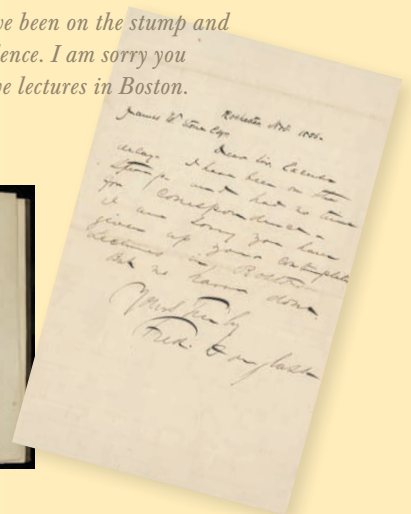 've been on the stump and
lence. I am sorry you
e lectures in Boston.
Rochester Nov.
James W. Stone Esq.
Dear Sir, Excuse
delay. I have been on the
stump and had no time
for correspondence.
I am sorry you have
given up your contemplated
lectures in Boston
But no harm done.
Yours Truly
Fred. Douglass